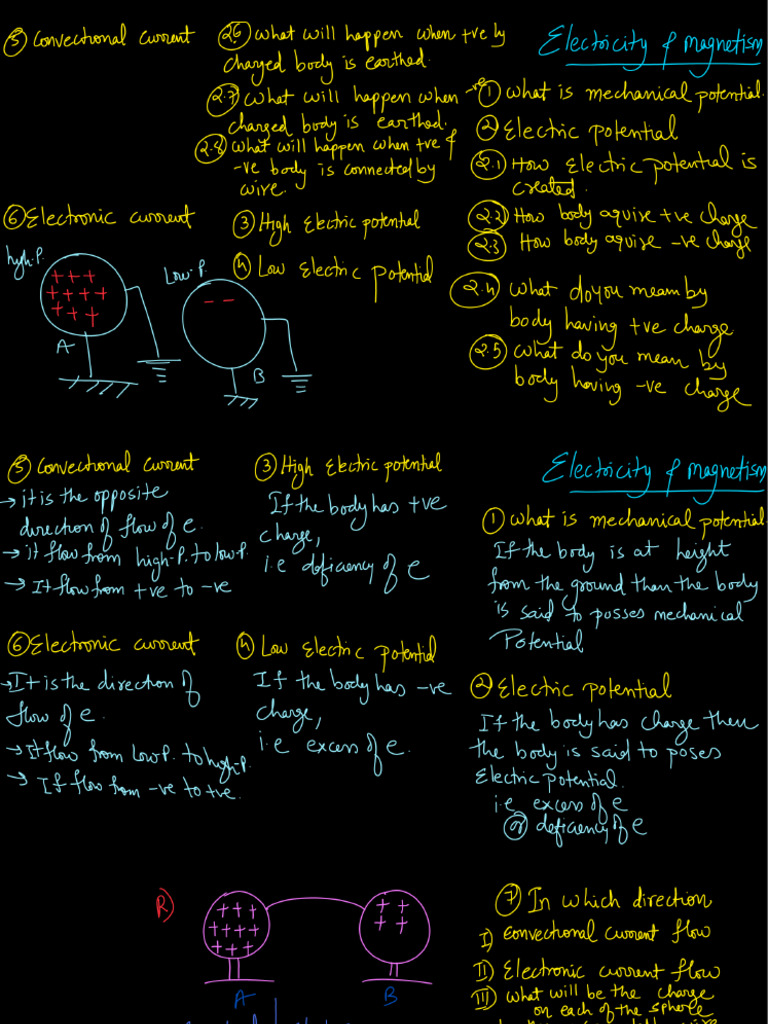 Electricity & magnetism
① What is mechanical potential.
② Electric potential
2.1 How Electric potential is
created.
2.2 How body aquire +ve charge
2.3 How body aquire -ve charge
2.4 What do you mean by
body having +ve charge
2.5 What do you mean by
body having -ve charge
26 What will happen when +vely
charged body is earthed.
2.7 What will happen when -ve
charged body is earthed.
2.8 What will happen when +ve &
-ve body is connected by
wire.
③ High Electric potential
④ Low Electric potential
⑤ Convectional current
⑥ Electronic current
high.P.
+ + +
+ + + +
+ + +
A
Low.P.
- -
B
Electricity & magnetism
① What is mechanical potential.
If the body is at height
from the ground than the body
is said to posses mechanical
Potential
② Electric potential
If the body has charge then
the body is said to poses
Electric potential.
i.e excess of e
or deficiency of e
③ High Electric potential
If the body has +ve
charge,
i.e deficiency of e
④ Low Electric potential
If the body has -ve
charge,
i.e excess of e.
⑤ Convectional current
→ it is the opposite
direction of flow of e.
→ it flow from high-P. to low P.
→ It flow from +ve to -ve
⑥ Electronic current
→ It is the direction of
flow of e.
→ It flow from Low P. to high-P.
→ If flow from -ve to +ve.
R)
+ + +
+ + + +
+ + +
A
+ +
+ +
B
⑦ In which direction
I) Convectional current flow
II) Electronic current flow
III) What will be the charge
on each of the sphere